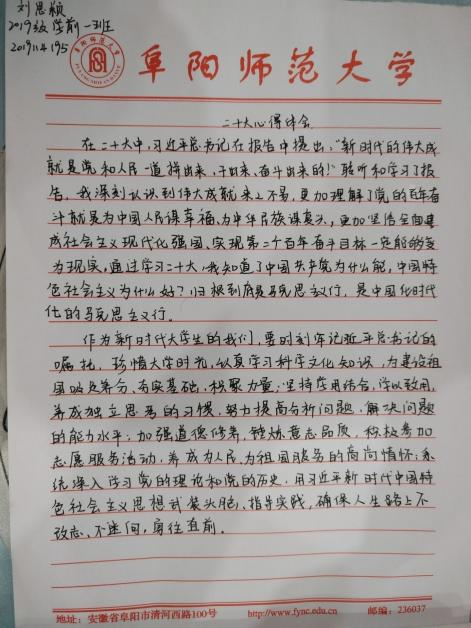 刘思颖
2019级学前一班
2019114195
阜阳师范大学
FUYANG NORMAL UNIVERSITY
二十大心得体会
在二十大中,习近平总书记在报告中提出:“新时代的伟大成
就是党和人民一道拼出来、干出来、奋斗出来的!”聆听和学习了报
告,我深刻认识到伟大成就来之不易,更加理解了党的百年奋
斗就是为中国人民谋幸福、为中华民族谋复兴,更加坚信全面建
成社会主义现代化强国、实现第二个百年奋斗目标一定能够变
为现实,通过学习二十大,我知道了中国共产党为什么能,中国特
色社会主义为什么好?归根到底是马克思主义行,是中国化时代
化的马克思主义行。
作为新时代大学生的我们,要时刻牢记习近平总书记的
嘱托,珍惜大学时光,认真学习科学文化知识,为建设祖
国吸足养分、夯实基础、积聚力量;坚持学用结合,学以致用,
养成独立思考的习惯,努力提高分析问题,解决问题
的能力水平;加强道德修养,锤炼意志品质,积极参加
志愿服务活动,养成为人民、为祖国服务的高尚情怀;系
统深入学习党的理论和党的历史,用习近平新时代中国特
色社会主义思想武装头脑、指导实践,确保人生路上不
改志、不迷向,勇往直前。
地址:安徽省阜阳市清河西路100号 http://www.fync.edu.cn 邮编:236037